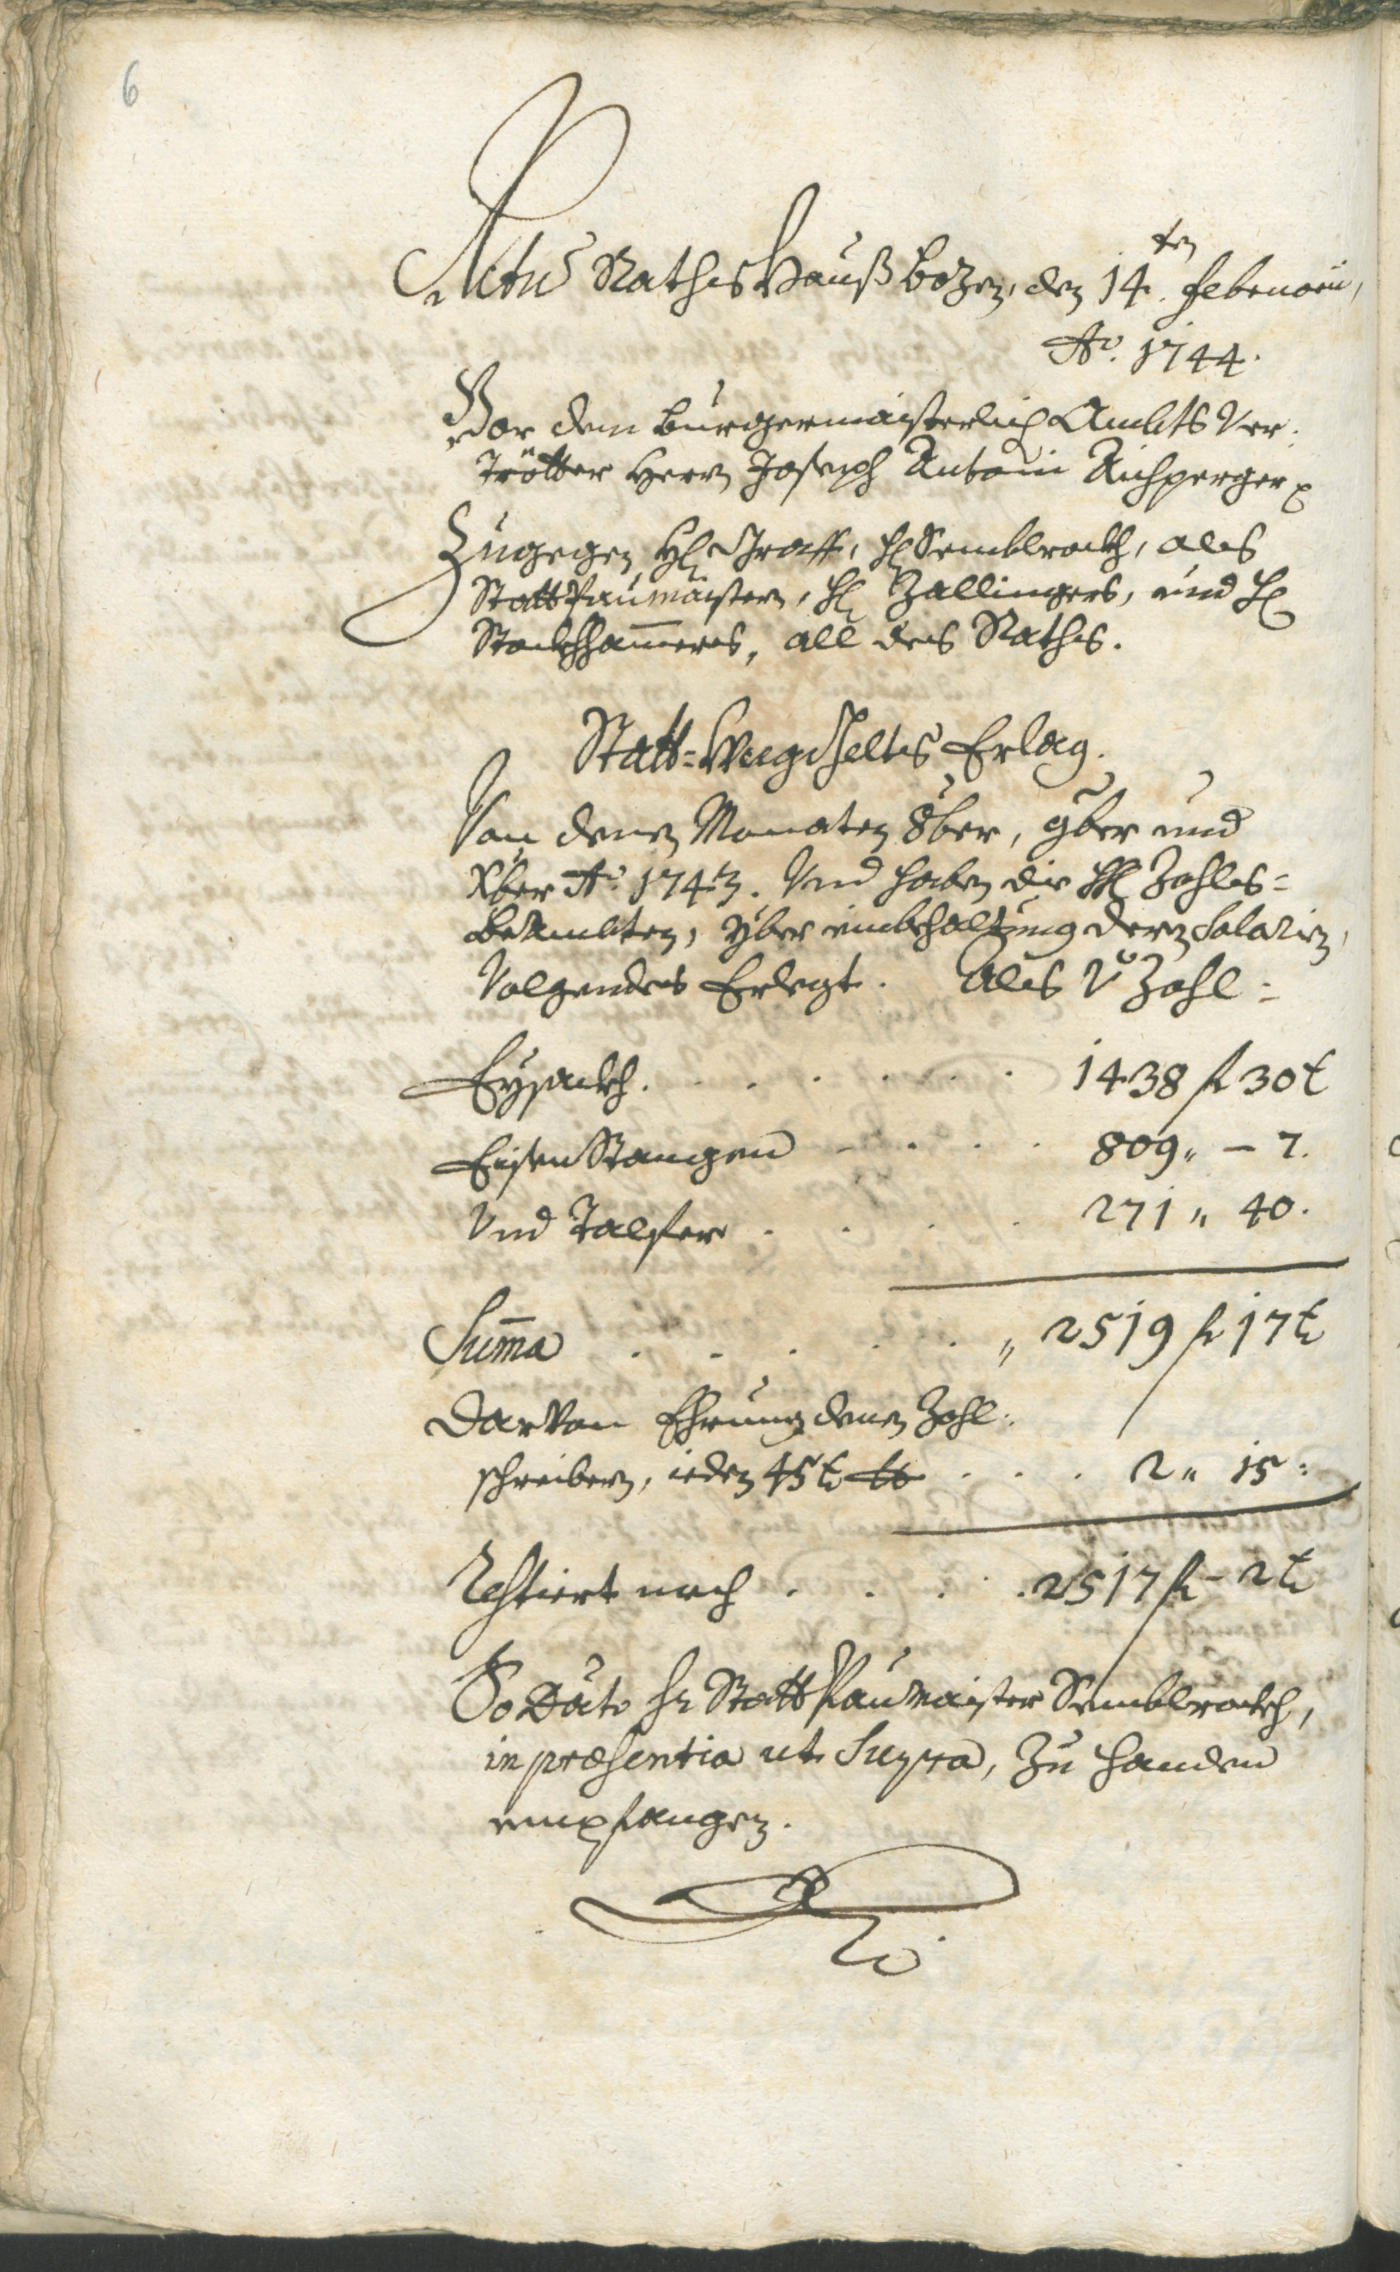 6
Actus Rathshauß Bozen, den 14.ten Februarii,
Ao. 1744.
Vor dem Burgermaisterlich Ambts Ver-
trötter Herrn Joseph Antoni Aichperger
Zugegen H: Graff, H: Semblrockh, als
Stattpaumaistern, H: Zallingers, und H:
Stockhhamers, all des Raths.
Statt-Weggeltes Erlag.
Von denen Monaten 8ber, 9ber und
Xber Ao. 1743. Und haben die HH: Zohls-
beambten, yber einbehaltung dern Salarien,
Volgendes Erlegt. Als V. Zohl-
Eysackh . . . . . . 1438 f 30 t
Eisenstangen - . . . 809 " - 7.
Und Talfer . . . . 271 " 40.
Suma . . . . . " 2519 f 17 t
Darvon Ehrung denen Zohl-
schreibern, ieden 45 t . . . 2 " 15 :
Restiert noch . . . . 2517 f - 2 t
So Dato Hr Stattpaumaister Semblrockh,
in præsentia ut Supra, zu handen
empfangen.